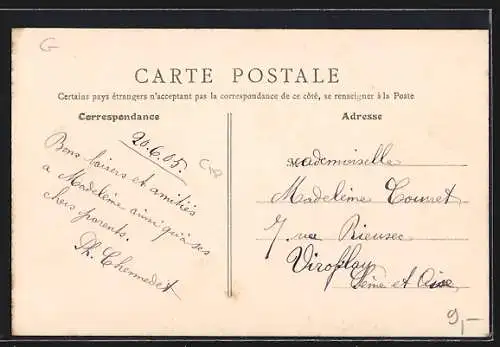 G
CARTE POSTALE
Certains pays étrangers n'acceptant pas la correspondance de ce côté, se renseigner à la Poste
Correspondance
20.6.05.
Bons baisers et amitiés
a Madeleine ainsi qu'à ses
chers parents.
Ph. Chennedet
Adresse
Mademoiselle
Madeleine Couvret
7 rue Rieussec
Viroflay
Seine et Oise
9,-